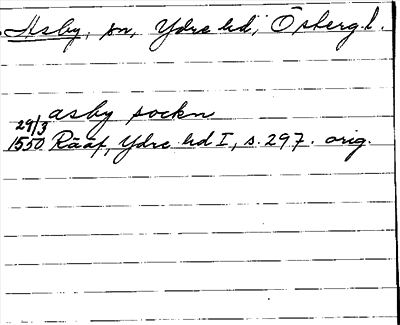 Asby, sn, Ydre hd, Östergl.
asby sockn
29/3
1550 Rääf, Ydre hd I, s. 297. orig.